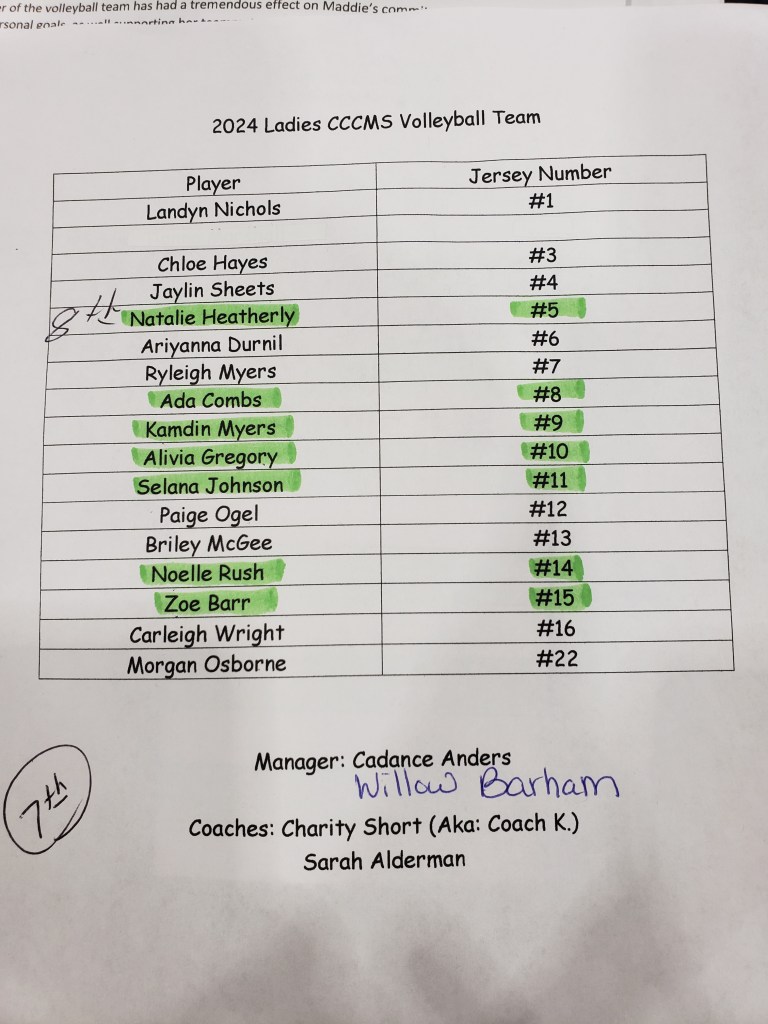 r of the volleyball team has had a tremendous effect on Maddie's
rsonal goals as well supporting her
2024 Ladies CCCMS Volleyball Team
Player Jersey Number
Landyn Nichols #1
Chloe Hayes #3
Jaylin Sheets #4
8th Natalie Heatherly #5
Ariyanna Durnil #6
Ryleigh Myers #7
Ada Combs #8
Kamdin Myers #9
Alivia Gregory #10
Selana Johnson #11
Paige Ogel #12
Briley McGee #13
Noelle Rush #14
Zoe Barr #15
Carleigh Wright #16
Morgan Osborne #22
Manager: Cadance Anders
Willow Barham
7th
Coaches: Charity Short (Aka: Coach K.)
Sarah Alderman